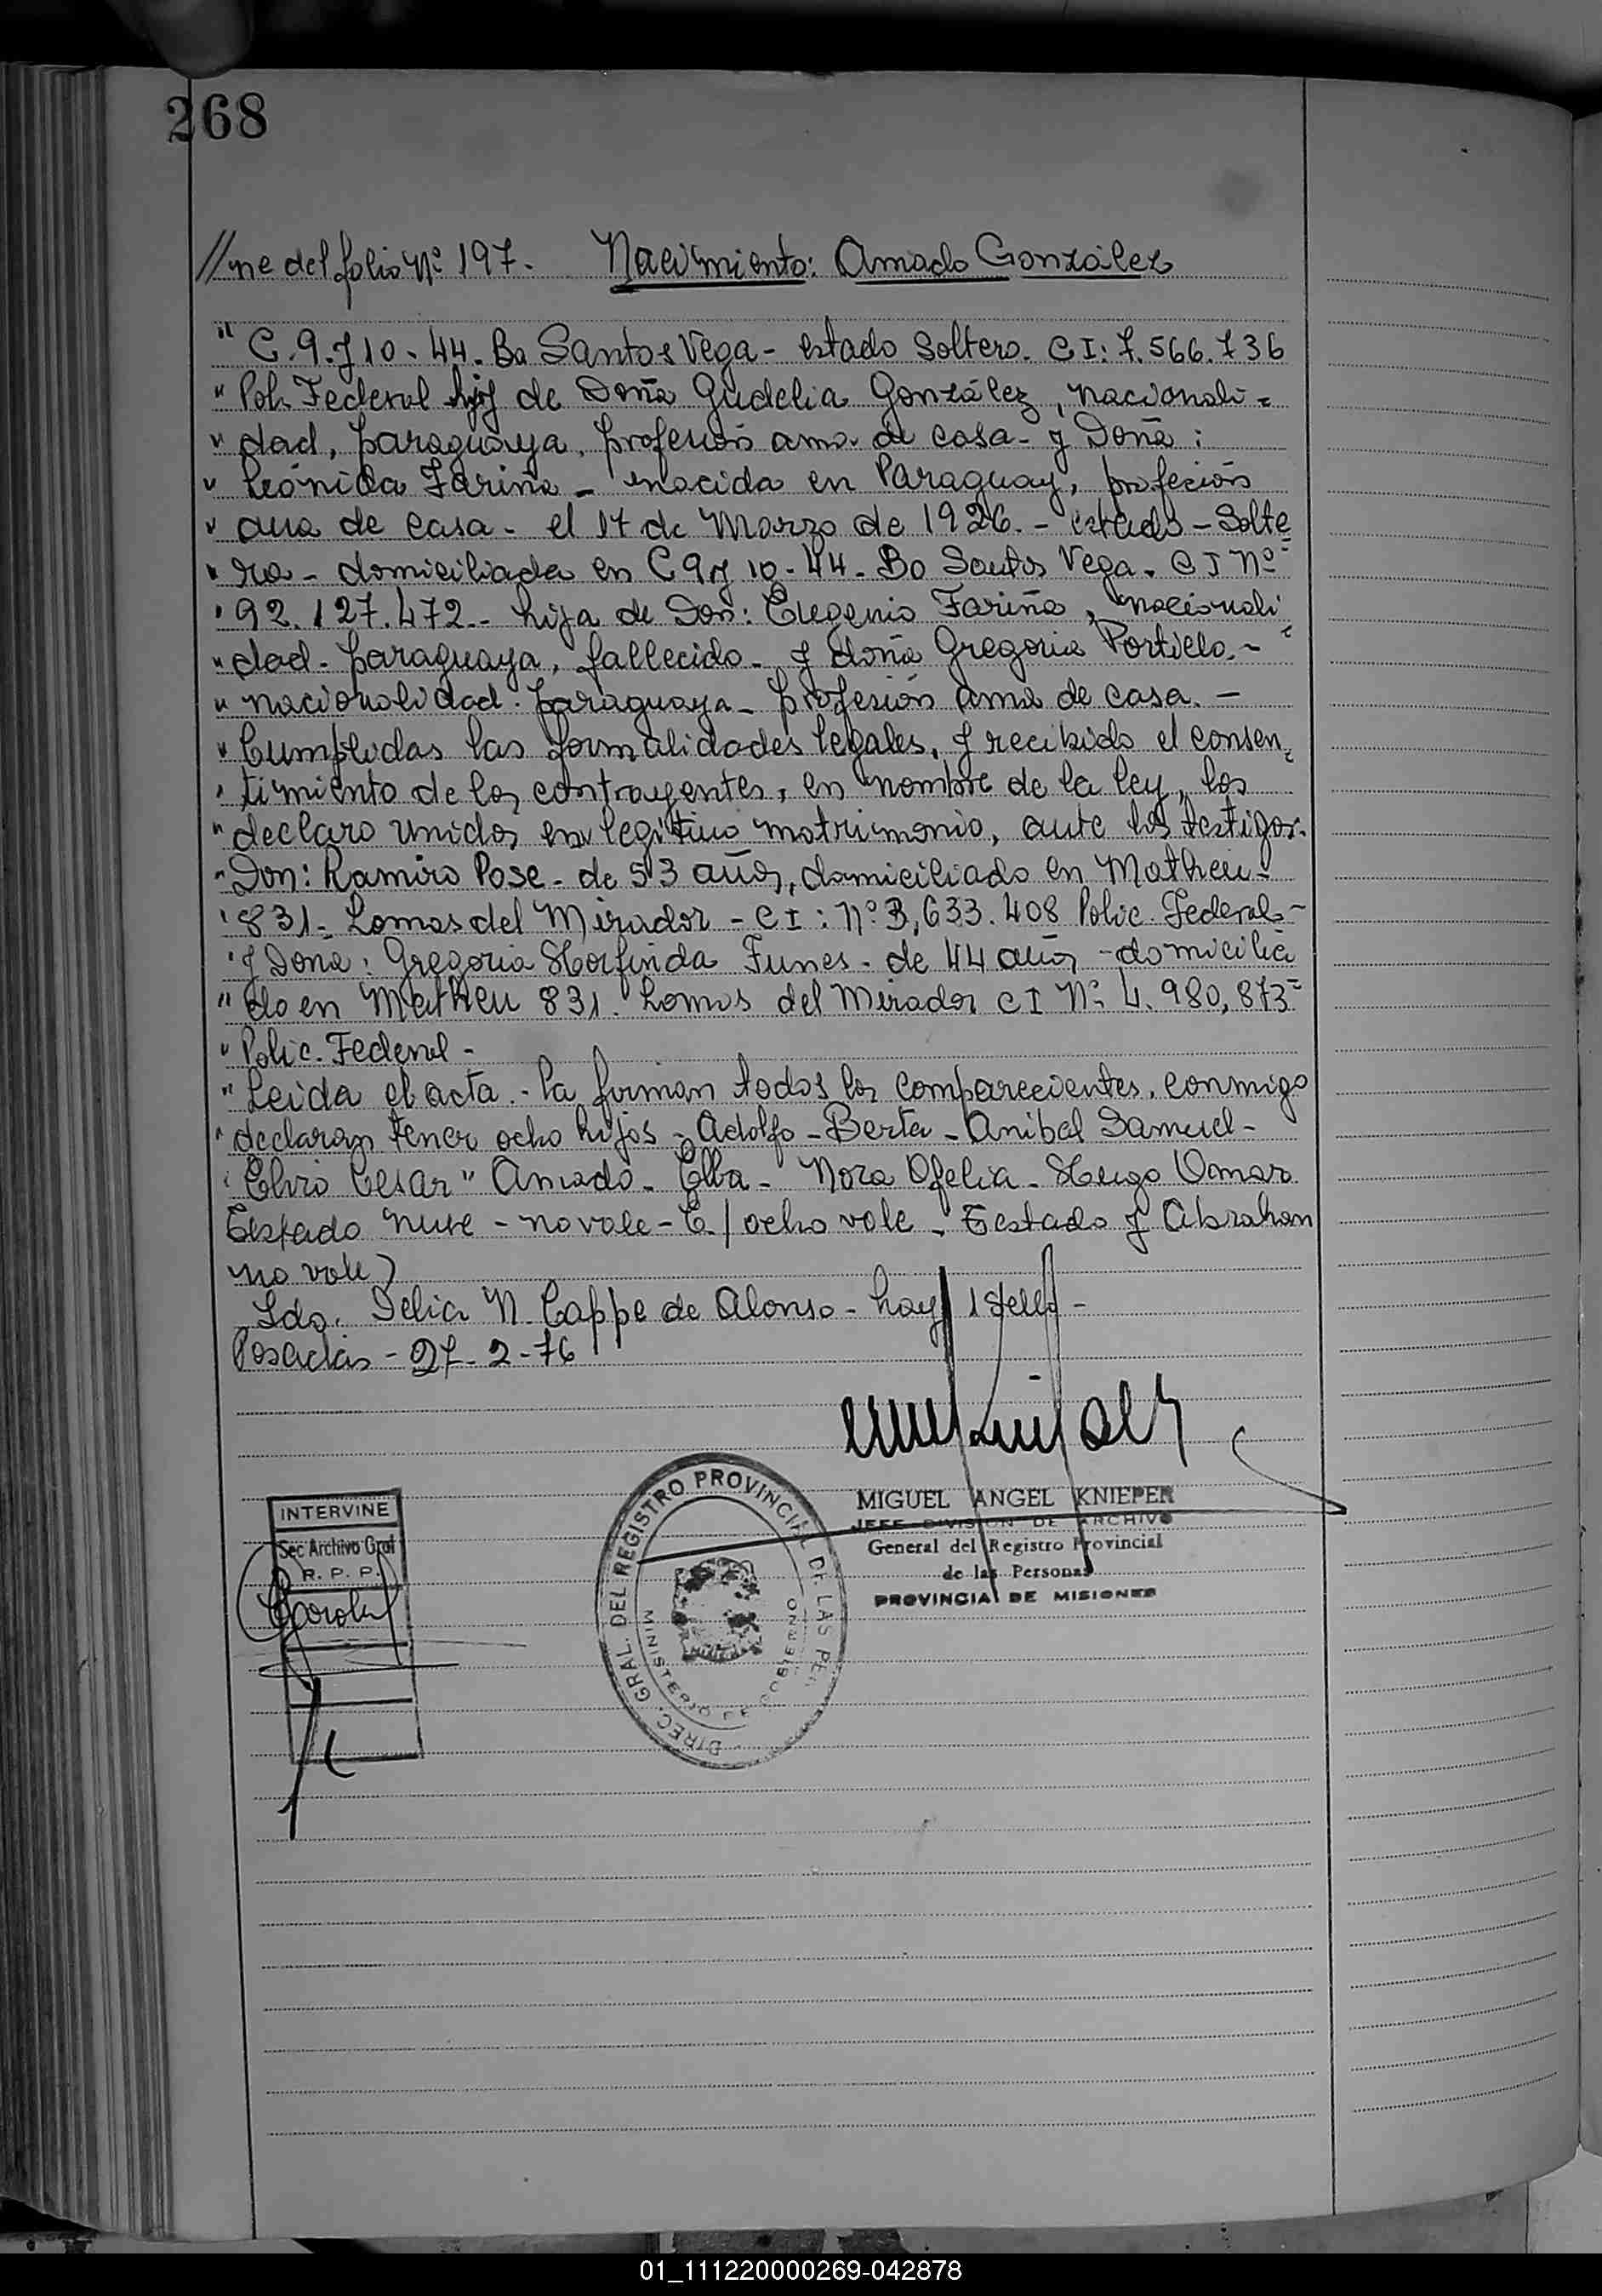 268
//ne del folio Nº 197. Nacimiento: Amado González
" C. 9. y 10. 44. Bo Santos Vega - estado Soltero. CI: 7.566.736
" Pol. Federal hijo de Doña Gudelia González, nacionali=
" dad, paraguaya, profesión ama de casa - y Doña:
" Leónida Fariña - nacida en Paraguay, profeción
" ama de casa - el 17 de Marzo de 1926. - estado - Solte
" ra - domiciliada en C 9 y 10 - 44 - Bo Santos Vega. CI Nº
" 92.127.472.- hija de Don: Eugenio Fariña, nacionali
" dad - paraguaya, fallecido - y doña Gregoria Portillo.-
" nacionalidad. paraguaya - profesión ama de casa. -
" Cumplidas las formalidades legales, y recibido el consen
" timiento de los contrayentes, en nombre de la ley, los
" declaro unidos en legítimo matrimonio, ante los testigos.
" Don: Ramiro Pose - de 53 años, domiciliado en Matheu -
" 831. Lomas del Mirador - CI: Nº 3,633.408 Polic. Federal -
" y Dona: Gregoria Funes - de 44 años - domicilia
" do en Matheu 831. Lomas del Mirador CI Nº 4.980,873 -
" Polic. Federal -
" Leida el acta.- la firman todos los comparecientes, conmigo
" declaran tener ocho hijos - Adolfo - Berta - Anibal Samuel -
" Elvio Cesar " Amado - Elba - Nora Ofelia - Hugo Omar
Testado - no vale - E/ ocho vale - Testado y Abrahan
no vale)
Fdo. Delia N. Cappe de Alonso - hay 1 sello -
Posadas - 27 - 2 - 76
INTERVINE
Sec Archivo Gral
R. P. P.
DIREC. GRAL. DEL REGISTRO PROVINCIAL DE LAS PER.
MINISTERIO DE GOBIERNO
MIGUEL ANGEL KNIEPER
JEFE DIVISION DE ARCHIVO
General del Registro Provincial
de las Personas
PROVINCIA DE MISIONES
01_111220000269-042878